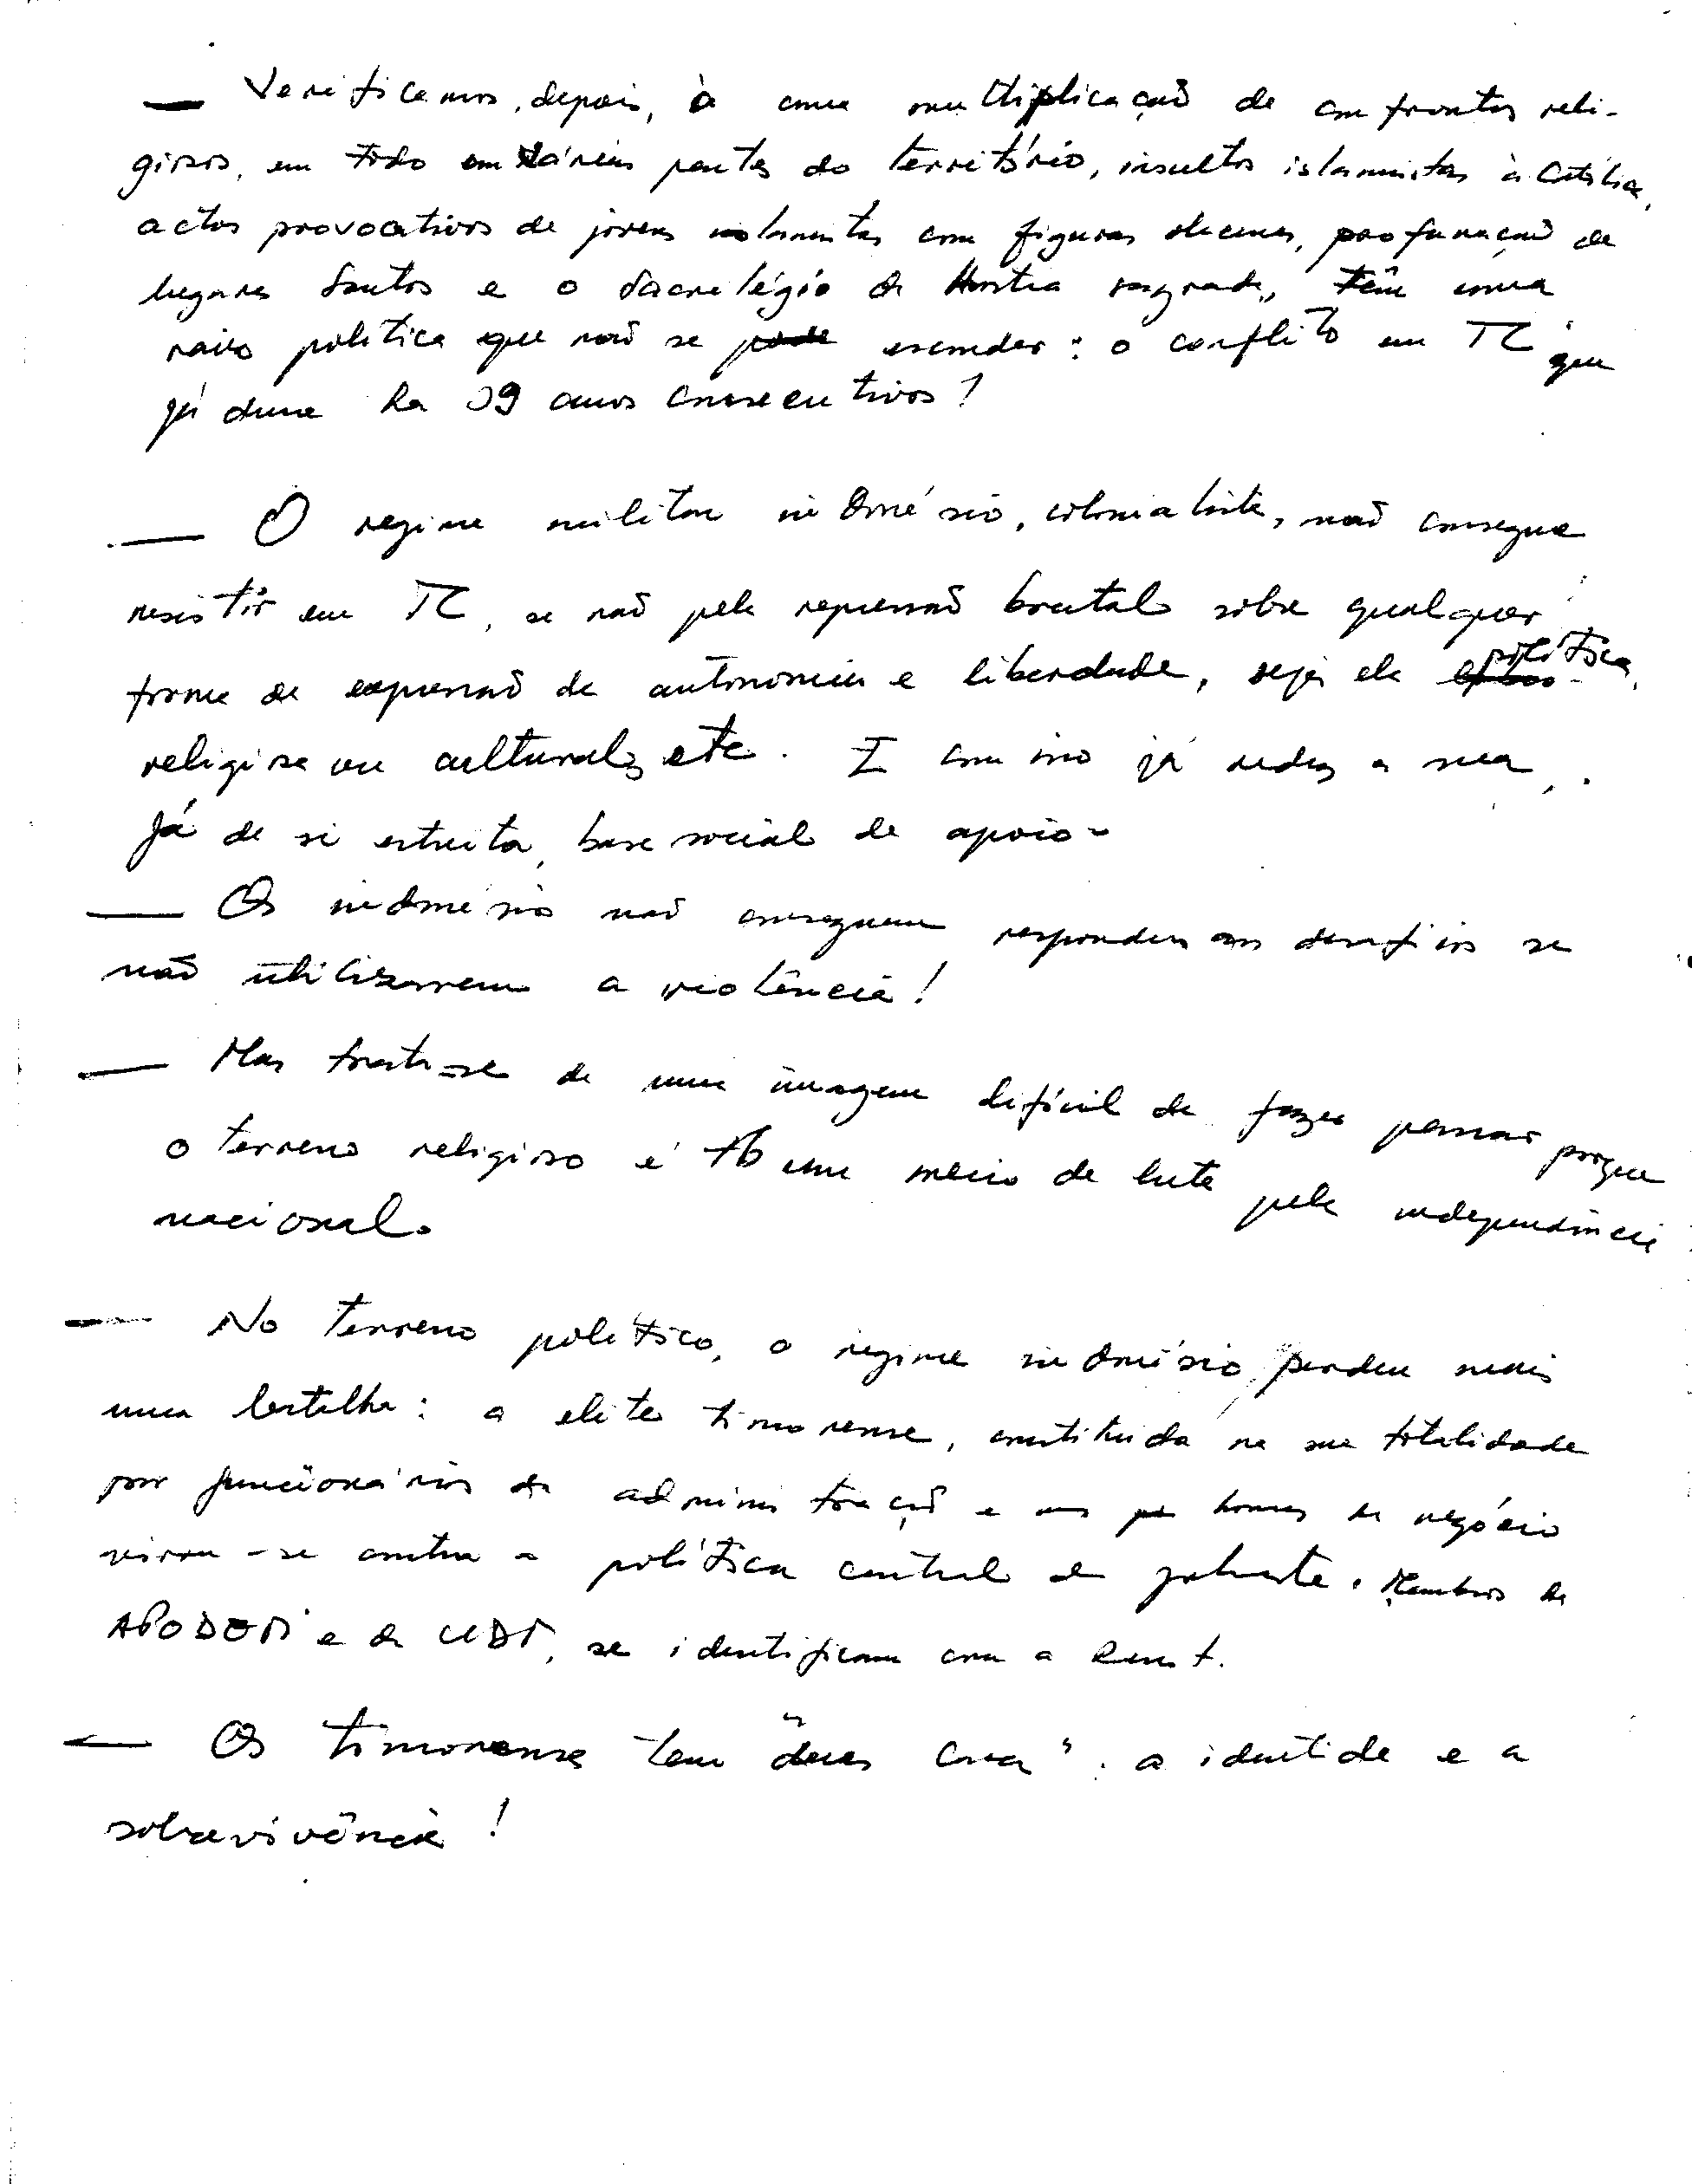 — Verificamos, depois, à uma multiplicação de confrontos reli-
giosos, em todo em várias partes do território, insultos islamistas à Católica,
actos provocativos de jovens islamistas com figuras obscenas, profanação de
lugares Santos e o sacrilégio da Hostia sagrada, têm uma
raiz politica que não se pode esconder: o conflito em TL que
já dura ha 19 anos consecutivos!
— O regime militar indonésio, colonialista, não consegue
resistir em TL, se não pela repressão brutal sobre qualquer
forma de expressão de autonomia e liberdade, seja ela política,
religiosa ou cultural, etc. E com isso já reduz a sua,
já de si estreita, base social de apoio.
— Os indonésios não conseguem responder aos desafios se
não utilizarem a violência!
— Mas trata-se de uma imagem difícil de fazer passar porque
o terreno religioso é tb um meio de luta pela independência
nacional.
— No terreno político, o regime indonésio perdeu mais
uma batalha: a elite timorense, constituida na sua totalidade
por funcionários da administração e homens de negócio
virou-se contra a política central de Jakarta. Membros da
APODETI e da UDT, se identificam com a Resist.
— Os timorenses tem duas "coisas": a identide e a
sobrevivência!